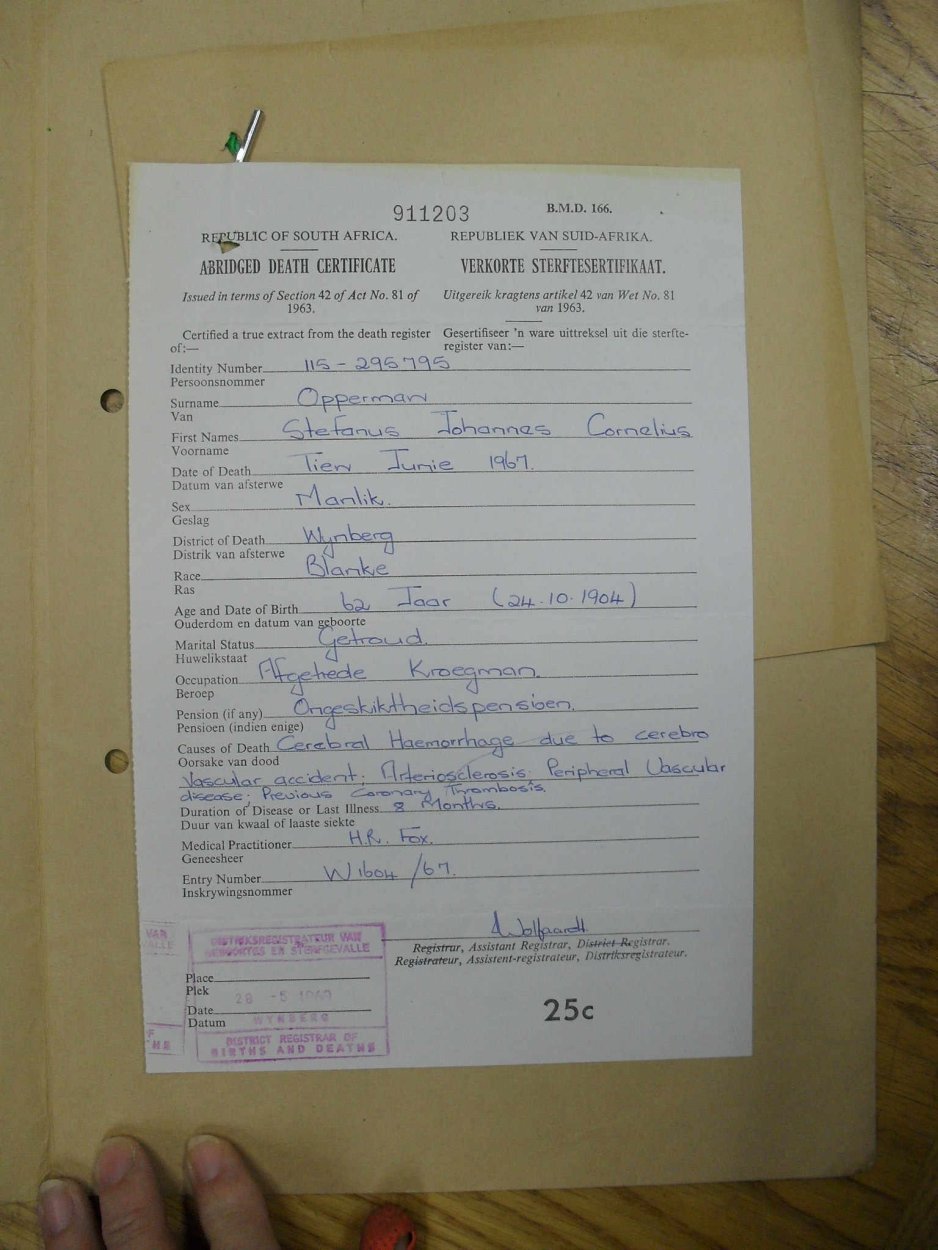 911203
B.M.D. 166.
REPUBLIC OF SOUTH AFRICA.
REPUBLIEK VAN SUID-AFRIKA.
ABRIDGED DEATH CERTIFICATE
VERKORTE STERFTESERTIFIKAAT.
Issued in terms of Section 42 of Act No. 81 of
1963.
Uitgereik kragtens artikel 42 van Wet No. 81
van 1963.
Certified a true extract from the death register
of:—
Gesertifiseer 'n ware uittreksel uit die sterfte-
register van:—
Identity Number 115-295795
Persoonsnommer
Surname Opperman
Van
First Names Stefanus Johannes Cornelius
Voorname
Date of Death Tien Junie 1967.
Datum van afsterwe
Sex Manlik.
Geslag
District of Death Wynberg
Distrik van afsterwe
Race Blanke
Ras
Age and Date of Birth 62 Jaar (24.10.1904)
Ouderdom en datum van geboorte
Marital Status Getroud.
Huwelikstaat
Occupation Afgetrede Kroegman.
Beroep
Pension (if any) Ongeskiktheidspensioen.
Pensioen (indien enige)
Causes of Death Cerebral Haemorrhage due to cerebro
Oorsake van dood
Vascular accident; Arteriosclerosis; Peripheral Vascular
disease; Previous Coronary Thrombosis.
Duration of Disease or Last Illness 8 Months.
Duur van kwaal of laaste siekte
Medical Practitioner H.R. Fox.
Geneesheer
Entry Number W1604/67.
Inskrywingsnommer
Wolfaardt
Registrar, Assistant Registrar, District Registrar.
Registrateur, Assistent-registrateur, Distriksregistrateur.
DISTRIKSREGISTRATEUR VAN
GEBOORTES EN STERFGEVALLE
Place
Plek
28 -5
Date
Datum
WYNBERG
DISTRICT REGISTRAR OF
BIRTHS AND DEATHS
25c